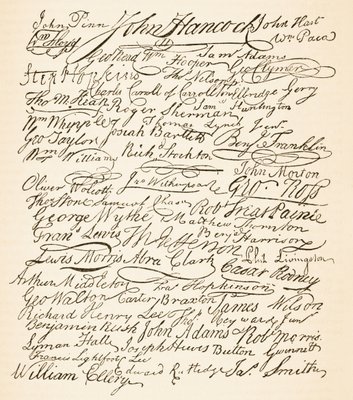 John Penn John Hancock John Hart
Wm Floyd Wm Paca
Geo Read Wm Hooper Sam Adams
Step Hopkins Thos Nelson jr Geo Clymer
Charles Carroll of Carrollton Elbridge Gerry
Tho M: Kean Roger Sherman Saml Huntington
Wm Whipple Thomas Lynch Junr
Geo Taylor Josiah Bartlett Benj Franklin
Wm Williams Richd Stockton
John Morton
Oliver Wolcott Jno Witherspoon Geo Ross
Thos Stone Samuel Chase Robt Treat Paine
George Wythe Matthew Thornton
Frans Lewis Th Jefferson Benj Harrison
Lewis Morris Abra Clark Phil Livingston
Casar Rodney
Arthur Middleton Fras Hopkinson
Geo Walton Carter Braxton James Wilson
Richard Henry Lee Thos Heyward Junr
Benjamin Rush John Adams Robt Morris
Lyman Hall Joseph Hewes Button Gwinnett
Francis Lightfoot Lee
William Ellery Edward Rutledge Jas Smith